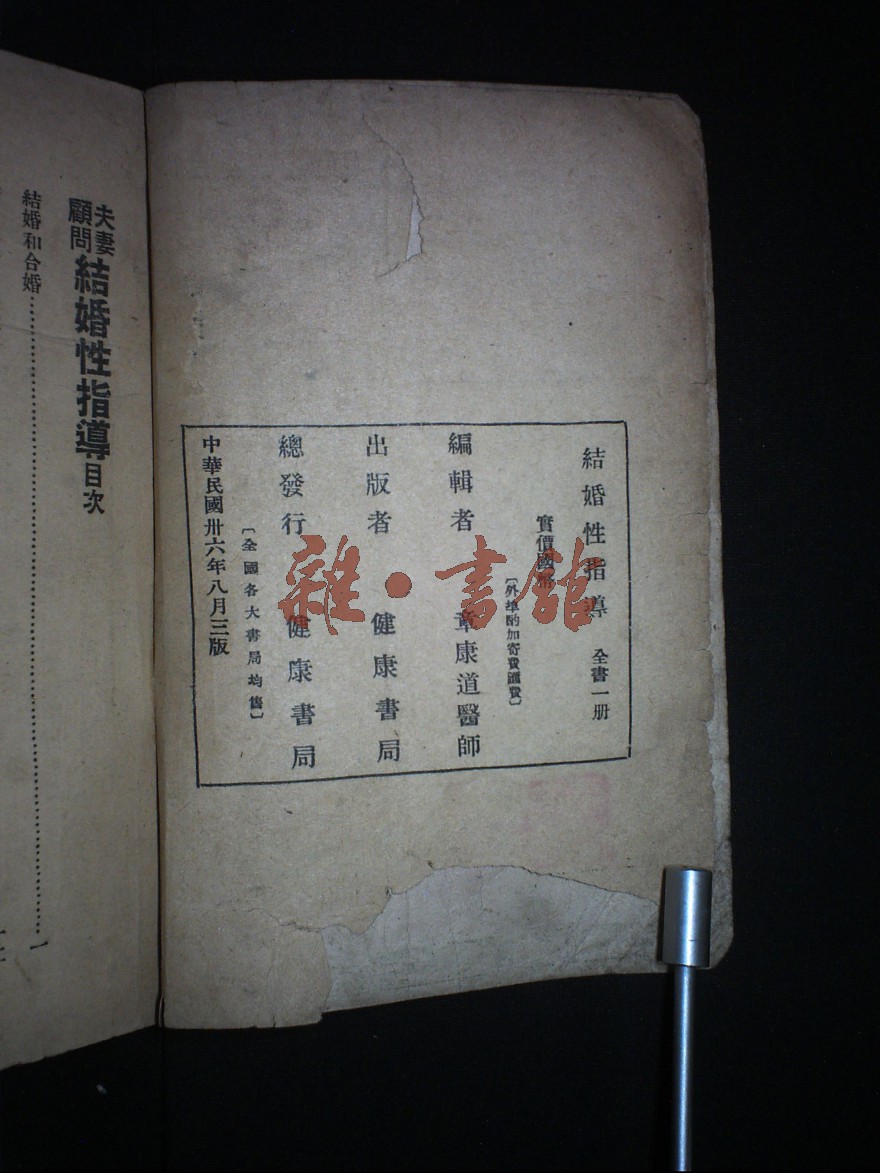 結婚性指導 全書一册
實價國幣
〔外埠酌加寄費匯費〕
編輯者 章康道醫師
出版者 健康書局
總發行 健康書局
〔全國各大書局均售〕
中華民國卅六年八月三版
夫妻顧問 結婚性指導目次
結婚和合婚⋯⋯⋯⋯⋯⋯⋯⋯⋯⋯⋯⋯一
雜·書館